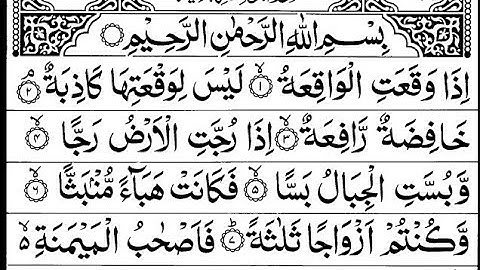 بِسْمِ اللهِ الرَّحْمٰنِ الرَّحِيْمِ
اِذَا وَقَعَتِ الْوَاقِعَةُ ۙ﴿۱﴾ لَيْسَ لِوَقْعَتِهَا كَاذِبَةٌ ۘ﴿۲﴾
خَافِضَةٌ رَّافِعَةٌ ۙ﴿۳﴾ اِذَا رُجَّتِ الْاَرْضُ رَجًّا ۙ﴿۴﴾
وَّبُسَّتِ الْجِبَالُ بَسًّا ۙ﴿۵﴾ فَكَانَتْ هَبَآءً مُّنْۢبَثًّا ۙ﴿۶﴾
وَّكُنْتُمْ اَزْوَاجًا ثَلٰثَةً ؕ﴿۷﴾ فَاَصْحٰبُ الْمَيْمَنَةِ ۵